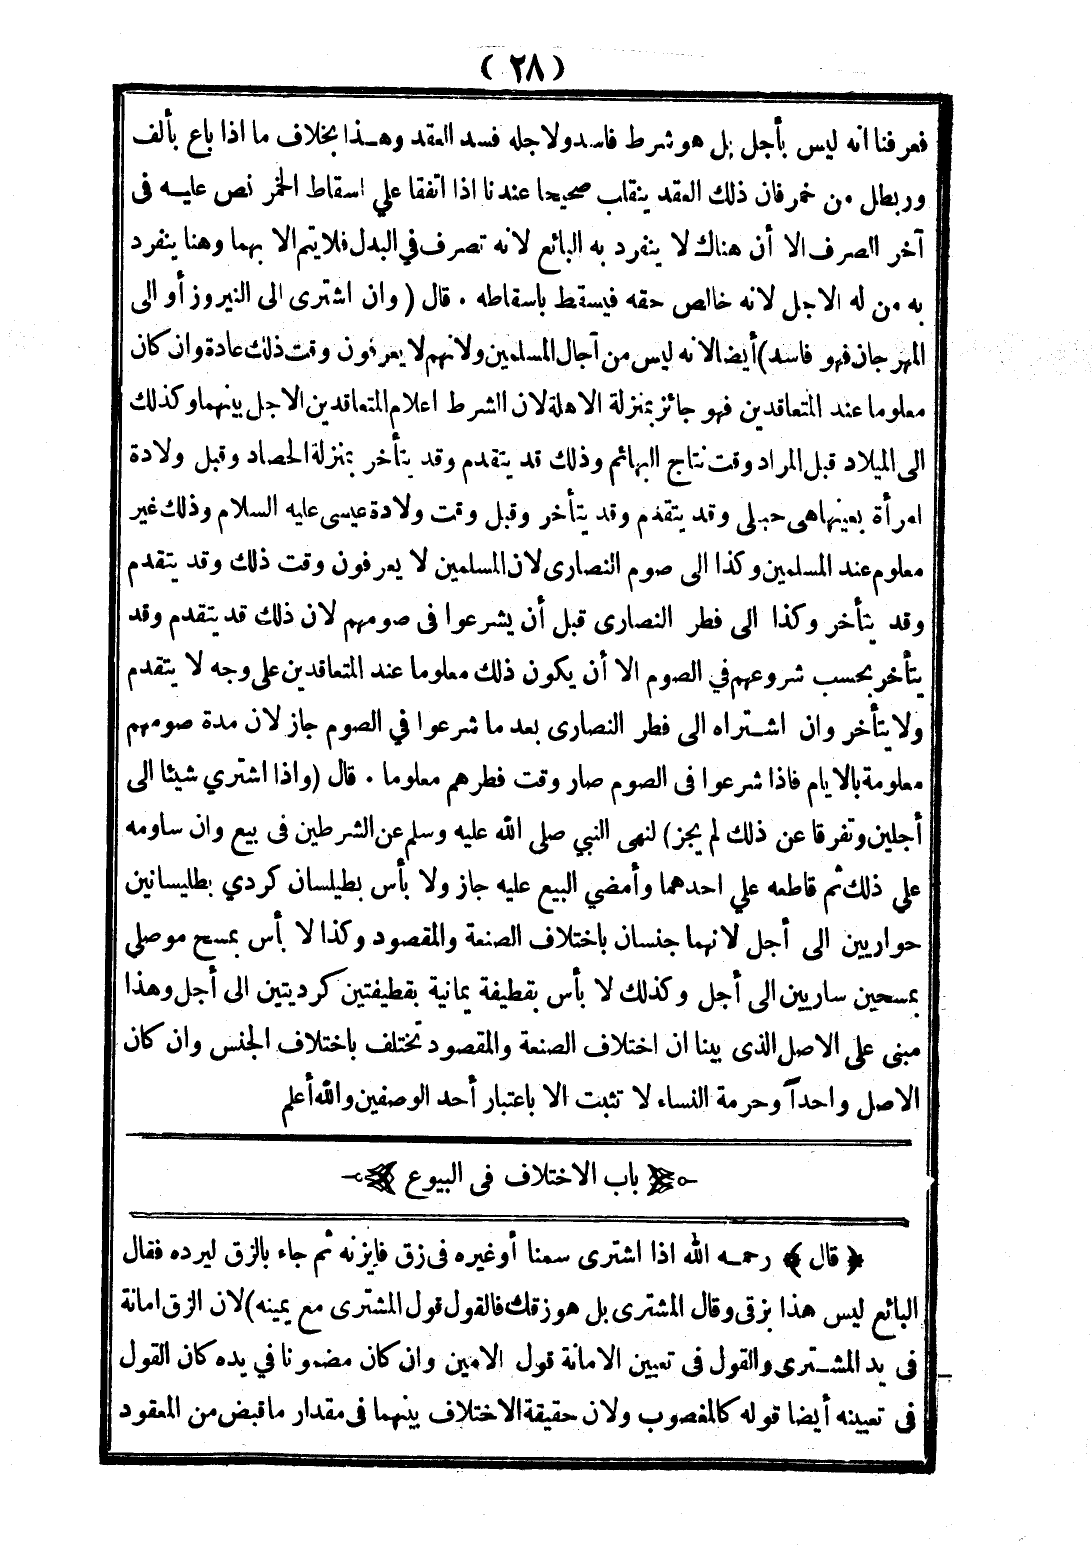 ( ٢٨ )
فعرفنا انه ليس بأجل بل هو شرط فاسد ولاجله فسد العقد وهـذا بخلاف ما اذا باع بألف
ورطل من خمر فان ذلك العقد ينقلب صحيحا عندنا اذا اتفقا علي اسقاط الخمر نص عليـه فى
آخر الصرف الا أن هناك لا ينفرد به البائع لانه تصرف في البدل فلا يتم الا بهما وهنا ينفرد
به من له الاجل لانه خالص حقه فيسقط باسقاطه . قال ( وان اشترى الى النيروز أو الى
المهرجان فهو فاسد) أيضا لانه ليس من آجال المسلمين ولانهم لا يعرفون وقت ذلك عادة وان كان
معلوما عند المتعاقدين فهو جائز بمنزلة الاهلة لان الشرط اعلام المتعاقدين الاجل بينهما وكذلك
الى الميلاد قبل المراد وقت نتاج البهائم وذلك قد يتقدم وقد يتأخر بمنزلة الحصاد وقبل ولادة
امرأة بعينها هى حبلى وقد يتقدم وقد يتأخر وقبل وقت ولادة عيسى عليه السلام وذلك غير
معلوم عند المسلمين وكذا الى صوم النصارى لان المسلمين لا يعرفون وقت ذلك وقد يتقدم
وقد يتأخر وكذا الى فطر النصارى قبل أن يشرعوا فى صومهم لان ذلك قد يتقدم وقد
يتأخر بحسب شروعهم في الصوم الا أن يكون ذلك معلوما عند المتعاقدين على وجه لا يتقدم
ولا يتأخر وان اشـتراه الى فطر النصارى بعد ما شرعوا في الصوم جاز لان مدة صومهم
معلومة بالايام فاذا شرعوا فى الصوم صار وقت فطرهم معلوما . قال (واذا اشتري شيئا الى
أجلين وتفرقا عن ذلك لم يجز) لنهى النبي صلى الله عليه وسلم عن الشرطين فى بيع وان ساومه
علي ذلك ثم قاطعه علي احدهما وأمضي البيع عليه جاز ولا بأس بطيلسان كردي بطليسانين
حواريين الى أجل لانهما جنسان باختلاف الصنعة والمقصود وكذا لا بأس بمسح موصلي
بمسحين ساريين الى أجل وكذلك لا بأس بقطيفة يمانية بقطيفتين كرديتين الى أجل وهذا
مبنى على الاصل الذى بينا ان اختلاف الصنعة والمقصود تختلف باختلاف الجنس وان كان
الاصل واحداً وحرمة النساء لا تثبت الا باعتبار أحد الوصفين والله أعلم
باب الاختلاف فى البيوع
﴿ قال ﴾ رحمـه الله اذا اشترى سمنا أو غيره فى زق فايزنه ثم جاء بالزق ليرده فقال
البائع ليس هذا بزقى وقال المشترى بل هو زقك فالقول قول المشترى مع يمينه) لان الزق امانة
فى يد المشـترى والقول فى تعيين الامانة قول الامين وان كان مضمونا في يده كان القول
فى تعيينه أيضا قوله كالمغصوب ولان حقيقة الاختلاف بينهما فى مقدار ما قبض من المعقود